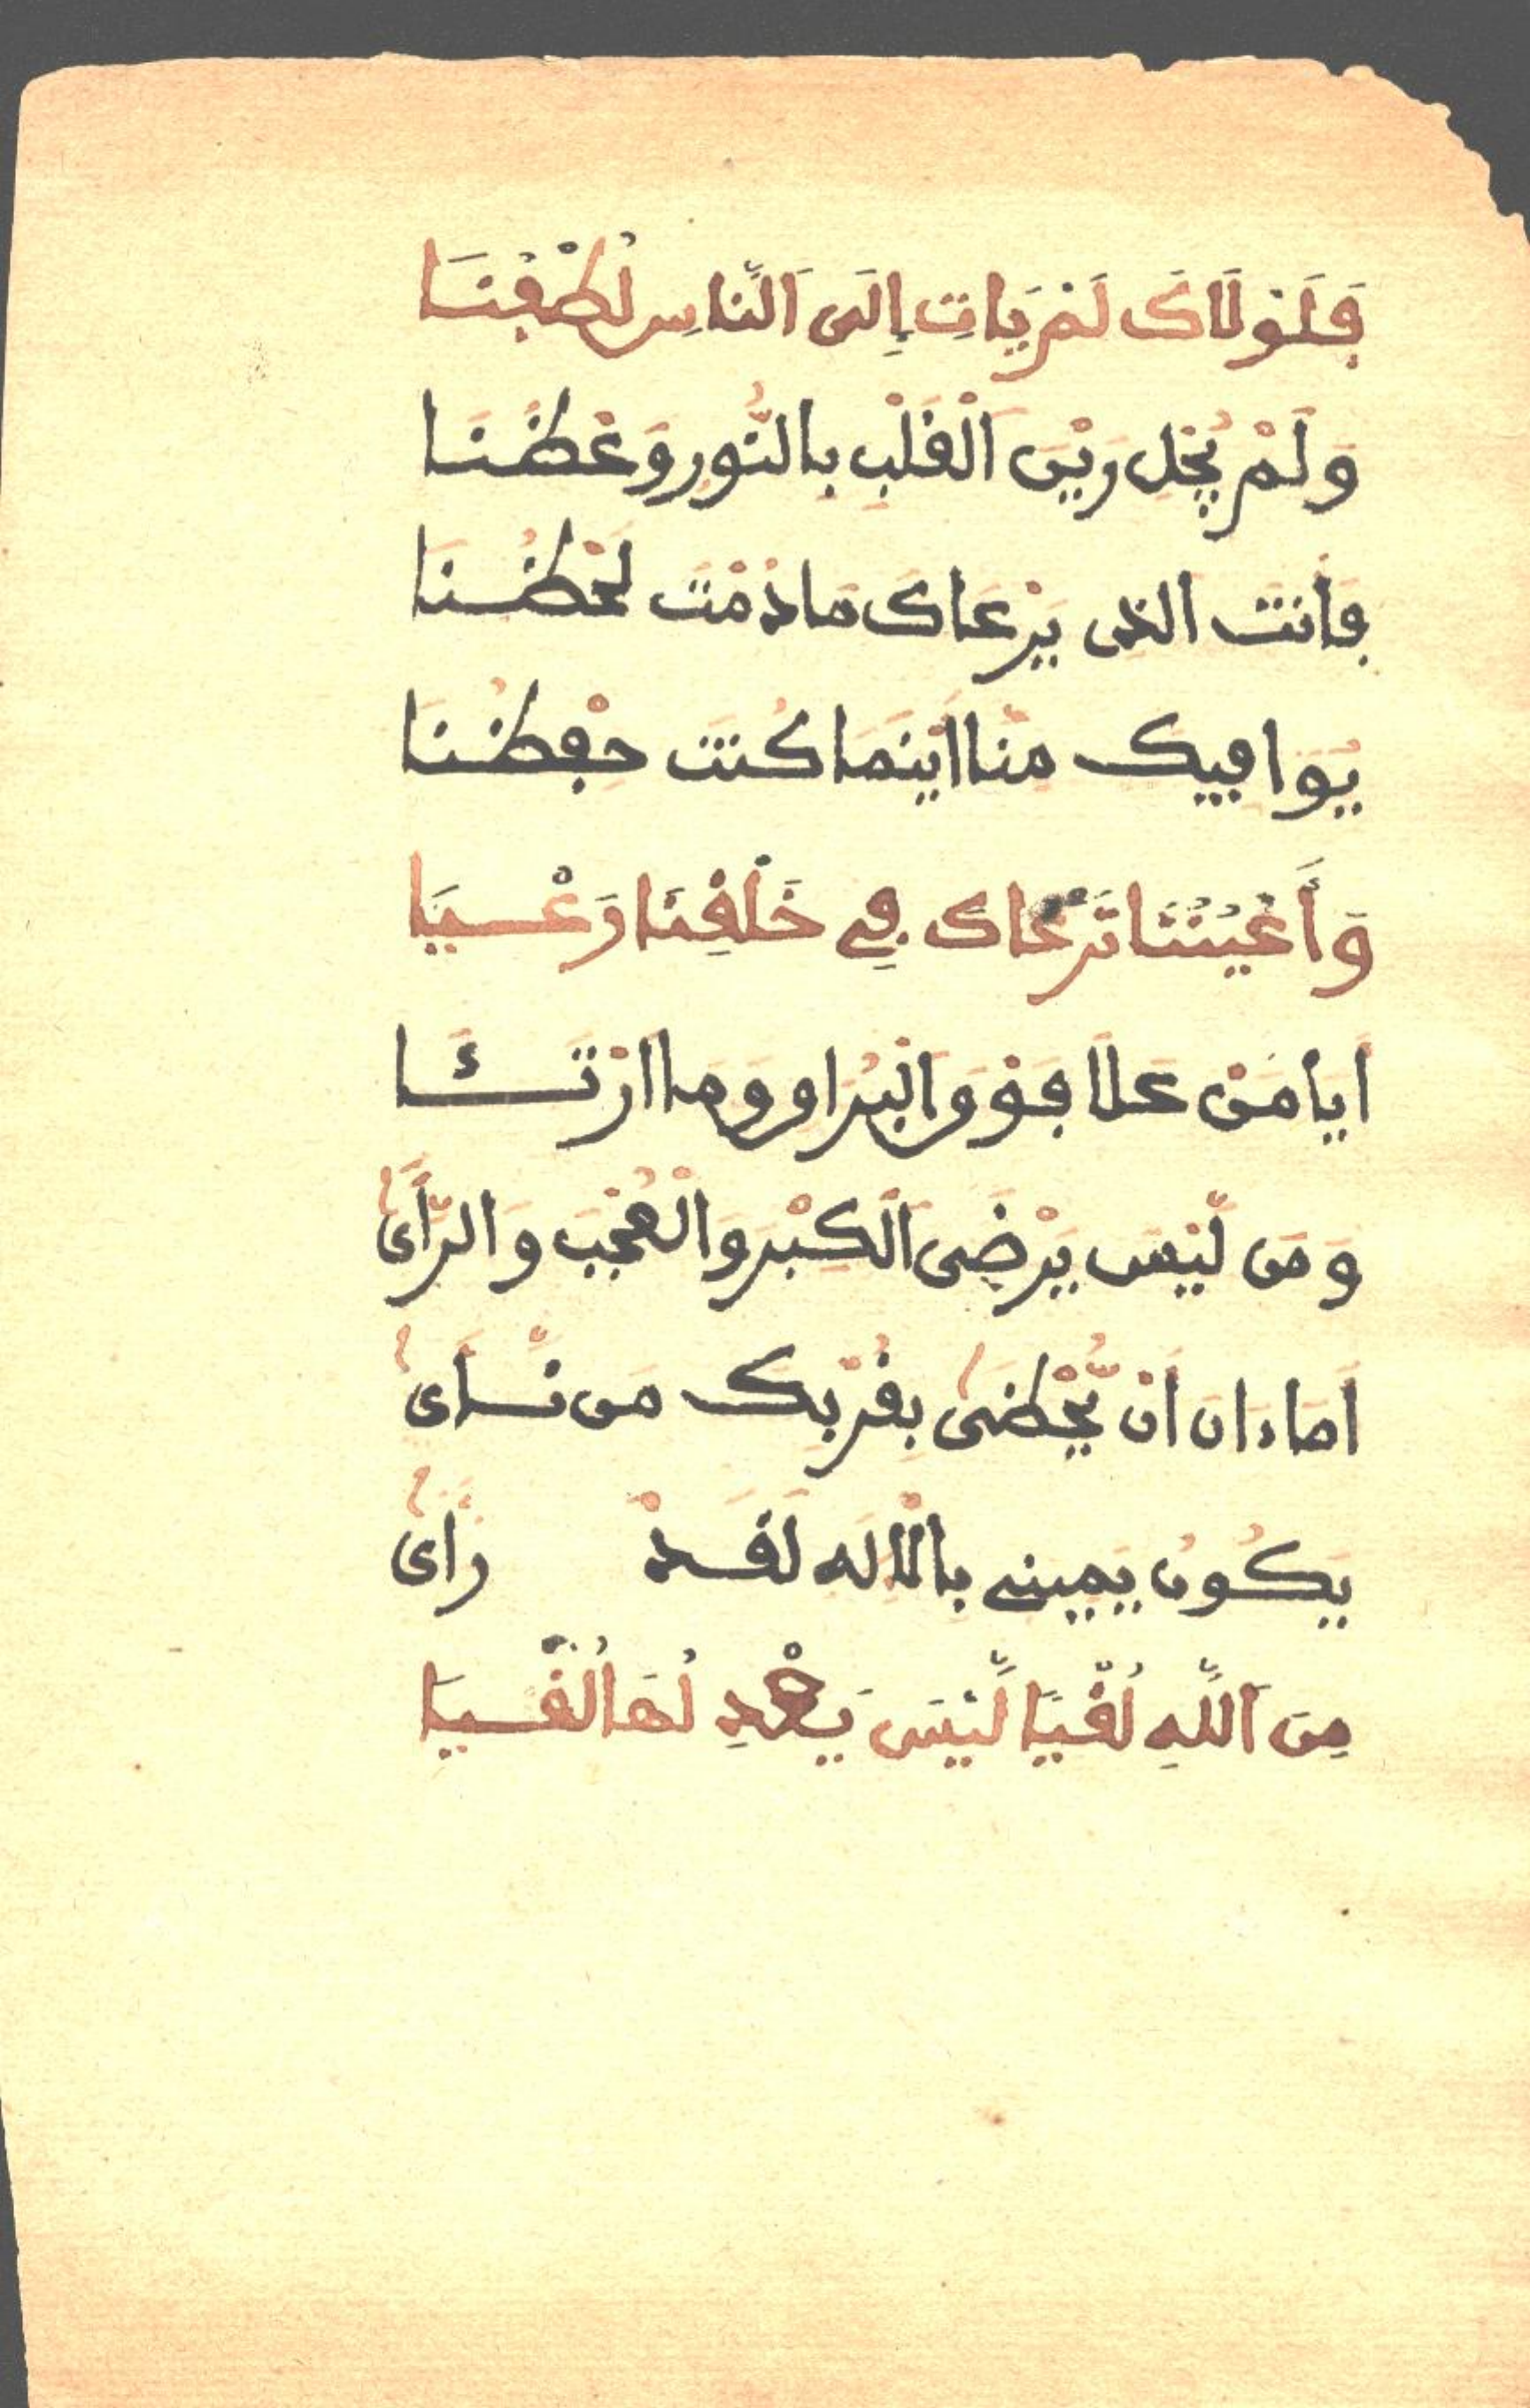 فَلَوْلَاكَ لَمْ يَاتِ إِلَى اَلنَّاسِ لُطْفُنَا
وَلَمْ يُجْلَ رَيْنَ اَلْقَلْبِ بالنُّورِ وَعْظُنَا
فأنت الذى يَرْعَاكَ مَا دُمْتَ لَحْظُنَا
يُوَافِيكَ مِنَّا أَيْنَمَا كُنْتَ حِفْظُنَا
وَأَعْيُنُنَا تَرْعَاكَ فِے خَلْقِنَا رَعْيَا
أَيَا مَنْ عَلَا فَوْقَ الْبُرَاقِ وَمَا ارْتَــئَا
وَمَن لَّيْسَ يَرْضَى اَلْكِبْرَ وَالْعُجْبَ وَالرَّأَىٰ
أَمَا ءَانَ أَنْ يُّحْظَىٰ بِقُرْبِكَ مَن نَّــأَىٰ
يَكُونُ يَمِينِے بالْإلَه لَقَــدْ رَأَىٰ
مِنَ اَللَّهِ لُقْيًا لَّيْسَ يَعْدِلُهَا لُقْيَا